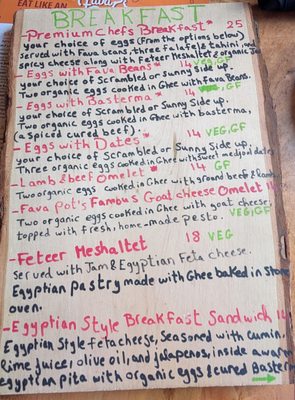 EAT LIKE AN
BREAKFAST
- Premium Chefs Breakfast* 25
your choice of eggs (from the options below)
served with Fava beans, three falafels tahini, and
spicy cheese along with Feteer Meshaltet &
- Eggs with Fava Beans* 14 VEG, GF
your choice of Scrambled or Sunny Side up.
Two organic eggs cooked in Ghee with Fava Beans.
- Eggs with Basterma* 14 GF
your choice of Scrambled or Sunny Side up.
Two organic eggs cooked in Ghee with basterma,
(a spiced cured beef).
- Eggs with Dates* 14 VEG, GF
your choice of Scrambled or Sunny Side up.
Three organic eggs cooked in Ghee with sweet medjool dates
- Lamb & beef Omelet* 14 GF
Two organic eggs cooked in Ghee with ground beef & lamb
- Fava Pot's Famous Goat cheese Omelet 14
Two organic eggs cooked in Ghee with goat cheese,
topped with fresh, home-made pesto. VEG, GF
- Feteer Meshaltet 18 VEG
Served with Jam & Egyptian Feta cheese.
Egyptian pastry made with Ghee baked in stone
oven.
- Egyptian Style Breakfast Sandwich 14
Egyptian style feta cheese, seasoned with cumin,
lime juice, olive oil, and jalapenos, inside a warm
egyptian pita with organic eggs & cured Basterma